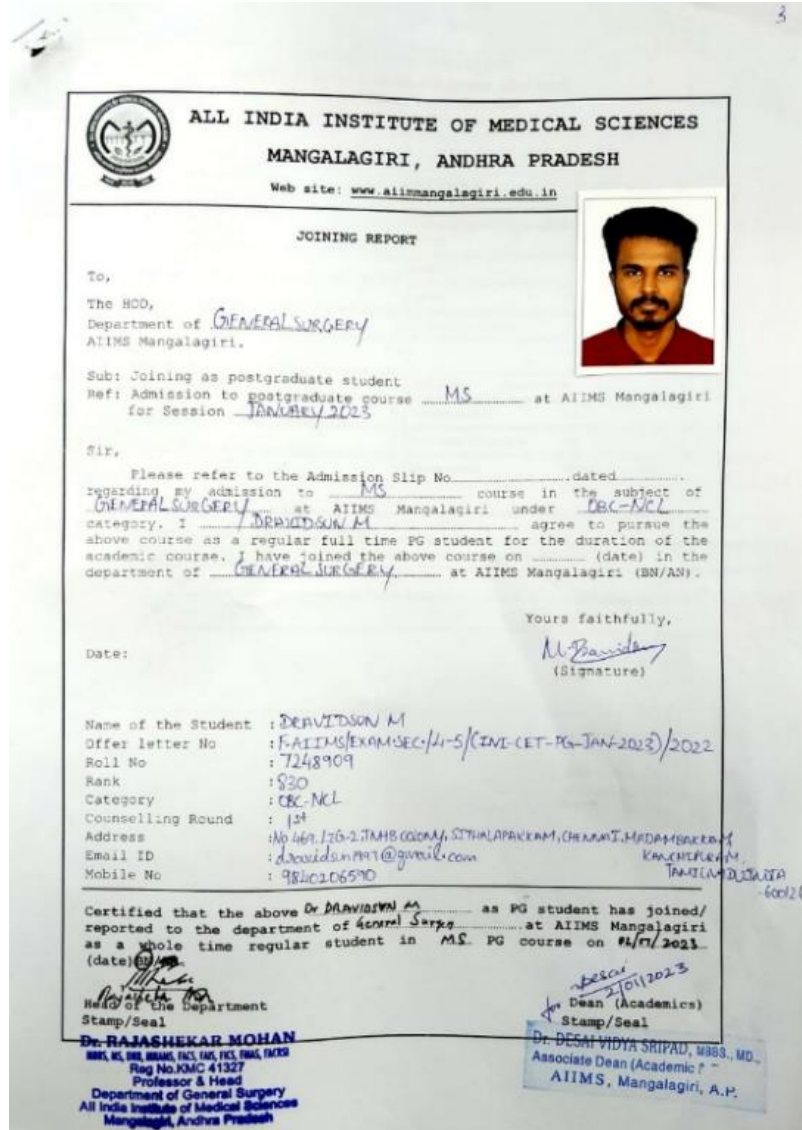 3
ALL INDIA INSTITUTE OF MEDICAL SCIENCES
MANGALAGIRI, ANDHRA PRADESH
Web site: www.aiimsmangalagiri.edu.in
JOINING REPORT
To,
The HOD,
Department of GENERAL SURGERY
AIIMS Mangalagiri.
Sub: Joining as postgraduate student
Ref: Admission to postgraduate course MS at AIIMS Mangalagiri
for Session JANUARY 2023
Sir,
Please refer to the Admission Slip No. dated
regarding my admission to MS course in the subject of
GENERAL SURGERY at AIIMS Mangalagiri under OBC-NCL
category. I DRAVIDSON M agree to pursue the
above course as a regular full time PG student for the duration of the
academic course. I have joined the above course on (date) in the
department of GENERAL SURGERY at AIIMS Mangalagiri (BN/AN).
Yours faithfully,
Date:
(Signature)
Name of the Student : DRAVIDSON M
Offer letter No : F.AIIMS/EXAM.SEC./4-5/(INI-CET-PG-JAN-2023)/2022
Roll No : 7248909
Rank : 830
Category : OBC-NCL
Counselling Round : 1st
Address : No 469, TNHB COLONY, SITHALAPAKKAM, CHENNAI, MADAMBAKKAM
KANCHIPURAM,
TAMILNADU INDIA
Email ID : @gmail.com
Mobile No : 9840206590
Certified that the above Dr DRAVIDSON M as PG student has joined/
reported to the department of General Surgery at AIIMS Mangalagiri
as a whole time regular student in MS PG course on 2023
(date)
Desai
2/01/2023
Head of the Department
for Dean (Academics)
Stamp/Seal
Stamp/Seal
Dr. RAJASHEKAR MOHAN
MBBS, MS, DNB, MNAMS, FACS, FAIS, FICS, FMAS,
Reg No.KMC 41327
Professor & Head
Department of General Surgery
All India Institute of Medical Sciences
Mangalagiri, Andhra Pradesh
Dr. DESAI VIDYA SRIPAD, MBBS., MD.,
Associate Dean (Academic
AIIMS, Mangalagiri, A.P.